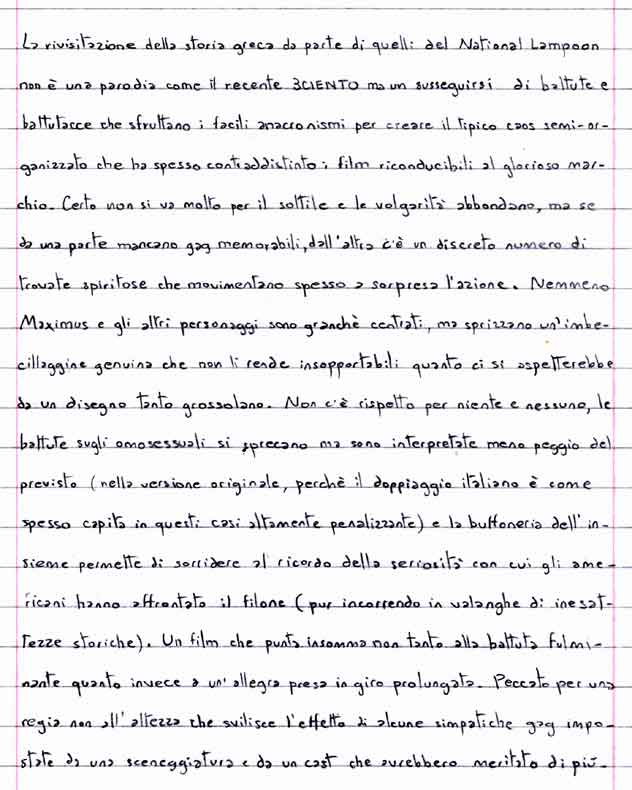 La rivisitazione della storia greca da parte di quelli del National Lampoon
non è una parodia come il recente 3CIENTO ma un susseguirsi di battute e
battutacce che sfruttano i facili anacronismi per creare il tipico caos semi-or-
ganizzato che ha spesso contraddistinto i film riconducibili al glorioso mar-
chio. Certo non si va molto per il sottile e le volgarità abbondano, ma se
da una parte mancano gag memorabili, dall'altra c'è un discreto numero di
trovate spiritose che movimentano spesso a sorpresa l'azione. Nemmeno
Maximus e gli altri personaggi sono granchè centrati, ma sprizzano un'imbe-
cillaggine genuina che non li rende insopportabili quanto ci si aspetterebbe
da un disegno tanto grossolano. Non c'è rispetto per niente e nessuno, le
battute sugli omosessuali si sprecano ma sono interpretate meno peggio del
previsto (nella versione originale, perchè il doppiaggio italiano è come
spesso capita in questi casi altamente penalizzante) e la buffoneria dell'in-
sieme permette di sorridere al ricordo della seriosità con cui gli ame-
ricani hanno affrontato il filone (pur incorrendo in valanghe di inesat-
tezze storiche). Un film che punta insomma non tanto alla battuta fulmi-
nante quanto invece a un'allegra presa in giro prolungata. Peccato per una
regia non all'altezza che svilisce l'effetto di alcune simpatiche gag impo-
state da una sceneggiatura e da un cast che avrebbero meritato di più.